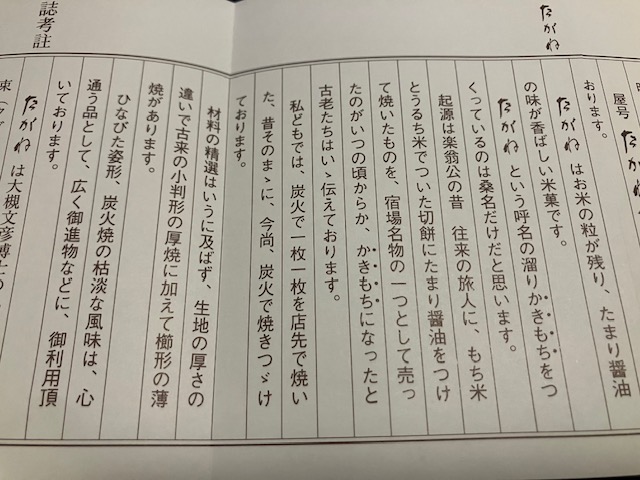 たがね
屋号 たがね
おります。
たがね はお米の粒が残り、たまり醤油
の味が香ばしい米菓です。
たがね という呼名の溜りかきもちをつ
くっているのは桑名だけだと思います。
起源は楽翁公の昔 往来の旅人に、もち米
とうるち米でついた切餅にたまり醤油をつけ
て焼いたものを、宿場名物の一つとして売っ
たのがいつの頃からか、かきもちになったと
古老たちはいゝ伝えております。
私どもでは、炭火で一枚一枚を店先で焼い
た、昔そのまゝに、今尚、炭火で焼きつゞけ
ております。
材料の精選はいうに及ばず、生地の厚さの
違いで古来の小判形の厚焼に加えて櫛形の薄
焼があります。
ひなびた姿形、炭火焼の枯淡な風味は、心
通う品として、広く御進物などに、御利用頂
いております。
誌考註
たがね は大槻文彦博士の